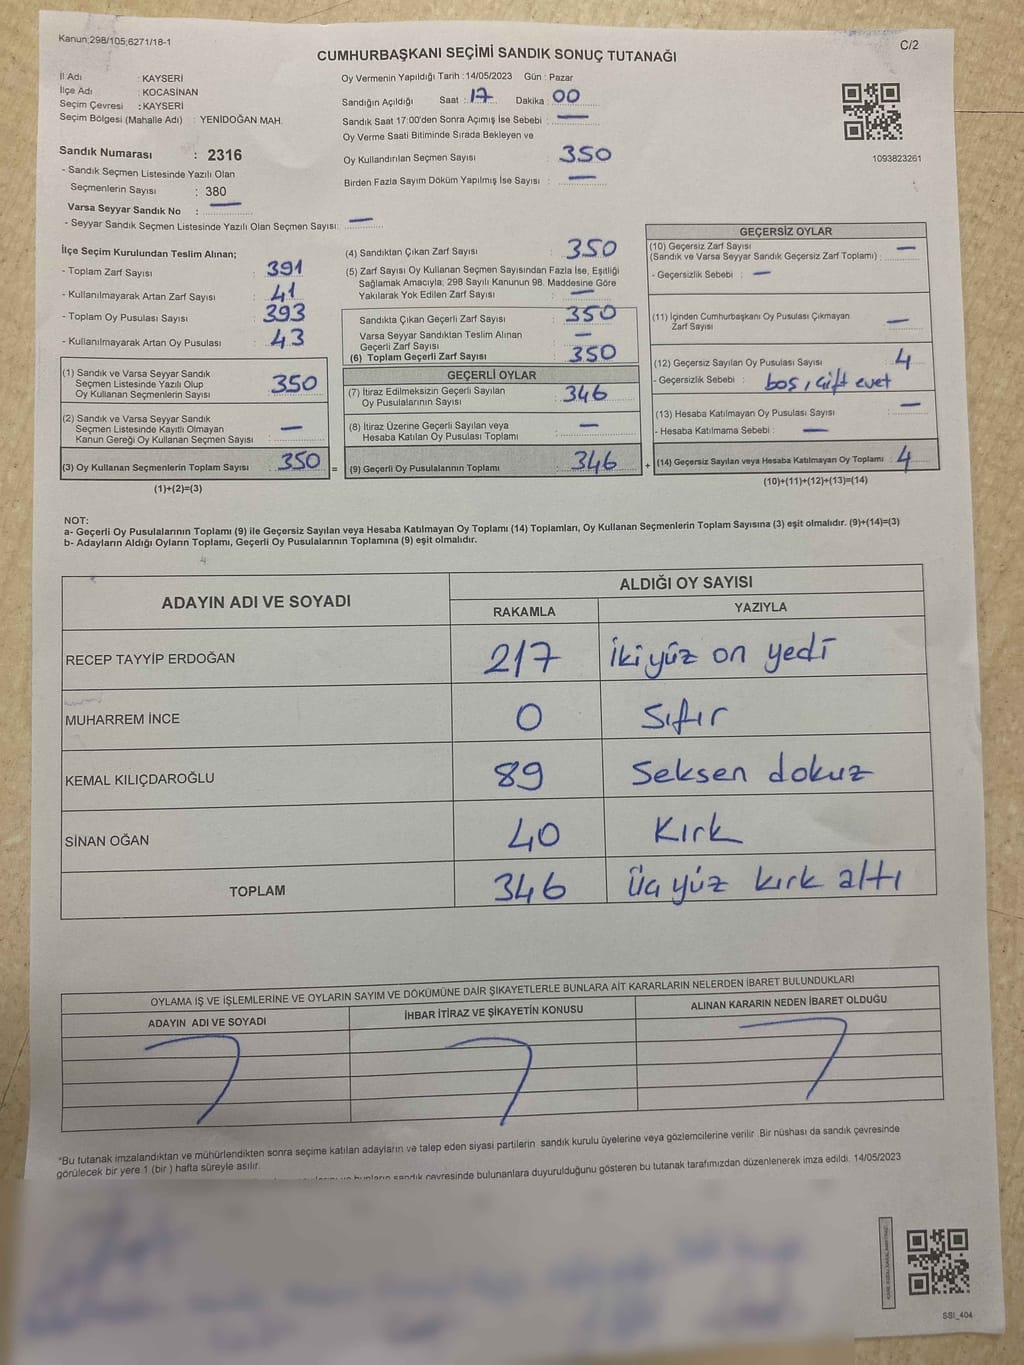 Kanun;298/105;6271/18-1
C/2
CUMHURBAŞKANI SEÇİMİ SANDIK SONUÇ TUTANAĞI
İl Adı : KAYSERİ
İlçe Adı : KOCASİNAN
Seçim Çevresi : KAYSERİ
Seçim Bölgesi (Mahalle Adı) : YENİDOĞAN MAH.
Sandık Numarası : 2316
- Sandık Seçmen Listesinde Yazılı Olan
Seçmenlerin Sayısı : 380
Varsa Seyyar Sandık No : —
- Seyyar Sandık Seçmen Listesinde Yazılı Olan Seçmen Sayısı: —
Oy Vermenin Yapıldığı Tarih :14/05/2023 Gün : Pazar
Sandığın Açıldığı Saat : 17 Dakika : 00
Sandık Saat 17:00'den Sonra Açımış İse Sebebi : —
Oy Verme Saati Bitiminde Sırada Bekleyen ve
Oy Kullandırılan Seçmen Sayısı : 350
Birden Fazla Sayım Döküm Yapılmış İse Sayısı : —
1093823261
İlçe Seçim Kurulundan Teslim Alınan;
- Toplam Zarf Sayısı : 391
- Kullanılmayarak Artan Zarf Sayısı : 41
- Toplam Oy Pusulası Sayısı : 393
- Kullanılmayarak Artan Oy Pusulası : 43
(1) Sandık ve Varsa Seyyar Sandık
Seçmen Listesinde Yazılı Olup
Oy Kullanan Seçmenlerin Sayısı : 350
(2) Sandık ve Varsa Seyyar Sandık
Seçmen Listesinde Kayıtlı Olmayan
Kanun Gereği Oy Kullanan Seçmen Sayısı : —
(3) Oy Kullanan Seçmenlerin Toplam Sayısı : 350 =
(1)+(2)=(3)
(4) Sandıktan Çıkan Zarf Sayısı : 350
(5) Zarf Sayısı Oy Kullanan Seçmen Sayısından Fazla İse, Eşitliği
Sağlamak Amacıyla; 298 Sayılı Kanunun 98. Maddesine Göre
Yakılarak Yok Edilen Zarf Sayısı : —
Sandıkta Çıkan Geçerli Zarf Sayısı : 350
Varsa Seyyar Sandıktan Teslim Alınan
Geçerli Zarf Sayısı : —
(6) Toplam Geçerli Zarf Sayısı : 350
GEÇERLİ OYLAR
(7) İtiraz Edilmeksizin Geçerli Sayılan
Oy Pusulalarının Sayısı : 346
(8) İtiraz Üzerine Geçerli Sayılan veya
Hesaba Katılan Oy Pusulası Toplamı : —
(9) Geçerli Oy Pusulalarının Toplamı : 346 +
GEÇERSİZ OYLAR
(10) Geçersiz Zarf Sayısı
(Sandık ve Varsa Seyyar Sandık Geçersiz Zarf Toplamı) : —
- Geçersizlik Sebebi : —
(11) İçinden Cumhurbaşkanı Oy Pusulası Çıkmayan
Zarf Sayısı : —
(12) Geçersiz Sayılan Oy Pusulası Sayısı : 4
- Geçersizlik Sebebi : boş, çift evet
(13) Hesaba Katılmayan Oy Pusulası Sayısı : —
- Hesaba Katılmama Sebebi : —
(14) Geçersiz Sayılan veya Hesaba Katılmayan Oy Toplamı : 4
(10)+(11)+(12)+(13)=(14)
NOT:
a- Geçerli Oy Pusulalarının Toplamı (9) ile Geçersiz Sayılan veya Hesaba Katılmayan Oy Toplamı (14) Toplamları, Oy Kullanan Seçmenlerin Toplam Sayısına (3) eşit olmalıdır. (9)+(14)=(3)
b- Adayların Aldığı Oyların Toplamı, Geçerli Oy Pusulalarının Toplamına (9) eşit olmalıdır.
ADAYIN ADI VE SOYADI
ALDIĞI OY SAYISI
RAKAMLA YAZIYLA
RECEP TAYYİP ERDOĞAN 217 İki yüz on yedi
MUHARREM İNCE 0 Sıfır
KEMAL KILIÇDAROĞLU 89 Seksen dokuz
SİNAN OĞAN 40 Kırk
TOPLAM 346 üç yüz kırk altı
OYLAMA İŞ VE İŞLEMLERİNE VE OYLARIN SAYIM VE DÖKÜMÜNE DAİR ŞİKAYETLERLE BUNLARA AİT KARARLARIN NELERDEN İBARET BULUNDUKLARI
ADAYIN ADI VE SOYADI İHBAR İTİRAZ VE ŞİKAYETİN KONUSU ALINAN KARARIN NEDEN İBARET OLDUĞU
*Bu tutanak imzalandıktan ve mühürlendikten sonra seçime katılan adayların ve talep eden siyasi partilerin sandık kurulu üyelerine veya gözlemcilerine verilir. Bir nüshası da sandık çevresinde
görülecek bir yere 1 (bir ) hafta süreyle asılır.
bunların sandık çevresinde bulunanlara duyurulduğunu gösteren bu tutanak tarafımızdan düzenlenerek imza edildi. 14/05/2023
SSI_404